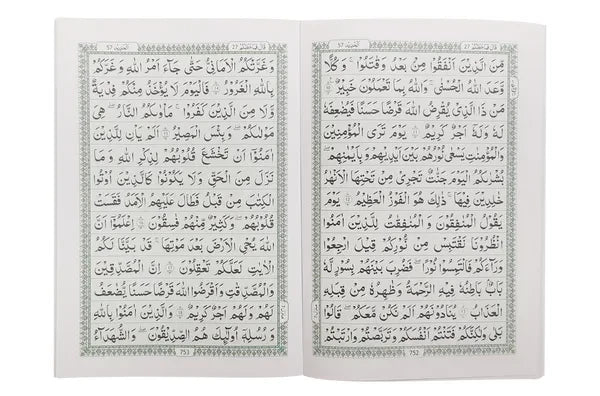 قَالَ فَمَا خَطْبُكُمْ 27
اَلْحَدِيْد 57
مِّنَ الَّذِيْنَ اَنْفَقُوْا مِنْۢ بَعْدُ وَقٰتَلُوْا ؕ وَكُلًّا
وَّعَدَ اللّٰهُ الْحُسْنٰى ؕ وَاللّٰهُ بِمَا تَعْمَلُوْنَ خَبِيْرٌ ۝
مَنْ ذَا الَّذِيْ يُقْرِضُ اللّٰهَ قَرْضًا حَسَنًا فَيُضٰعِفَهٗ
لَهٗ وَلَهٗۤ اَجْرٌ كَرِيْمٌ ۝ يَوْمَ تَرَى الْمُؤْمِنِيْنَ
وَالْمُؤْمِنٰتِ يَسْعٰى نُوْرُهُمْ بَيْنَ اَيْدِيْهِمْ وَبِاَيْمَانِهِمْ
بُشْرٰىكُمُ الْيَوْمَ جَنّٰتٌ تَجْرِيْ مِنْ تَحْتِهَا الْاَنْهٰرُ
خٰلِدِيْنَ فِيْهَا ؕ ذٰلِكَ هُوَ الْفَوْزُ الْعَظِيْمُ ۝ يَوْمَ
يَقُوْلُ الْمُنٰفِقُوْنَ وَالْمُنٰفِقٰتُ لِلَّذِيْنَ اٰمَنُوا
انْظُرُوْنَا نَقْتَبِسْ مِنْ نُّوْرِكُمْ ۚ قِيْلَ ارْجِعُوْا
وَرَآءَكُمْ فَالْتَمِسُوْا نُوْرًا ؕ فَضُرِبَ بَيْنَهُمْ بِسُوْرٍ لَّهٗ
بَابٌ ؕ بَاطِنُهٗ فِيْهِ الرَّحْمَةُ وَظَاهِرُهٗ مِنْ قِبَلِهِ
الْعَذَابُ ۝ يُنَادُوْنَهُمْ اَلَمْ نَكُنْ مَّعَكُمْ ؕ قَالُوْا
بَلٰى وَلٰكِنَّكُمْ فَتَنْتُمْ اَنْفُسَكُمْ وَتَرَبَّصْتُمْ وَارْتَبْتُمْ
752
قَالَ فَمَا خَطْبُكُمْ 27
اَلْحَدِيْد 57
وَغَرَّتْكُمُ الْاَمَانِيُّ حَتّٰى جَآءَ اَمْرُ اللّٰهِ وَغَرَّكُمْ
بِاللّٰهِ الْغَرُوْرُ ۝ فَالْيَوْمَ لَا يُؤْخَذُ مِنْكُمْ فِدْيَةٌ
وَّلَا مِنَ الَّذِيْنَ كَفَرُوْا ؕ مَاْوٰىكُمُ النَّارُ ؕ هِيَ
مَوْلٰىكُمْ ؕ وَبِئْسَ الْمَصِيْرُ ۝ اَلَمْ يَاْنِ لِلَّذِيْنَ
اٰمَنُوْۤا اَنْ تَخْشَعَ قُلُوْبُهُمْ لِذِكْرِ اللّٰهِ وَمَا
نَزَلَ مِنَ الْحَقِّ ۙ وَلَا يَكُوْنُوْا كَالَّذِيْنَ اُوْتُوا
الْكِتٰبَ مِنْ قَبْلُ فَطَالَ عَلَيْهِمُ الْاَمَدُ فَقَسَتْ
قُلُوْبُهُمْ ؕ وَكَثِيْرٌ مِّنْهُمْ فٰسِقُوْنَ ۝ اِعْلَمُوْۤا اَنَّ
اللّٰهَ يُحْيِ الْاَرْضَ بَعْدَ مَوْتِهَا ؕ قَدْ بَيَّنَّا لَكُمُ
الْاٰيٰتِ لَعَلَّكُمْ تَعْقِلُوْنَ ۝ اِنَّ الْمُصَّدِّقِيْنَ
وَالْمُصَّدِّقٰتِ وَاَقْرَضُوا اللّٰهَ قَرْضًا حَسَنًا يُّضٰعَفُ
لَهُمْ وَلَهُمْ اَجْرٌ كَرِيْمٌ ۝ وَالَّذِيْنَ اٰمَنُوْا بِاللّٰهِ
وَرُسُلِهٖۤ اُولٰٓئِكَ هُمُ الصِّدِّيْقُوْنَ ۖ وَالشُّهَدَآءُ
753